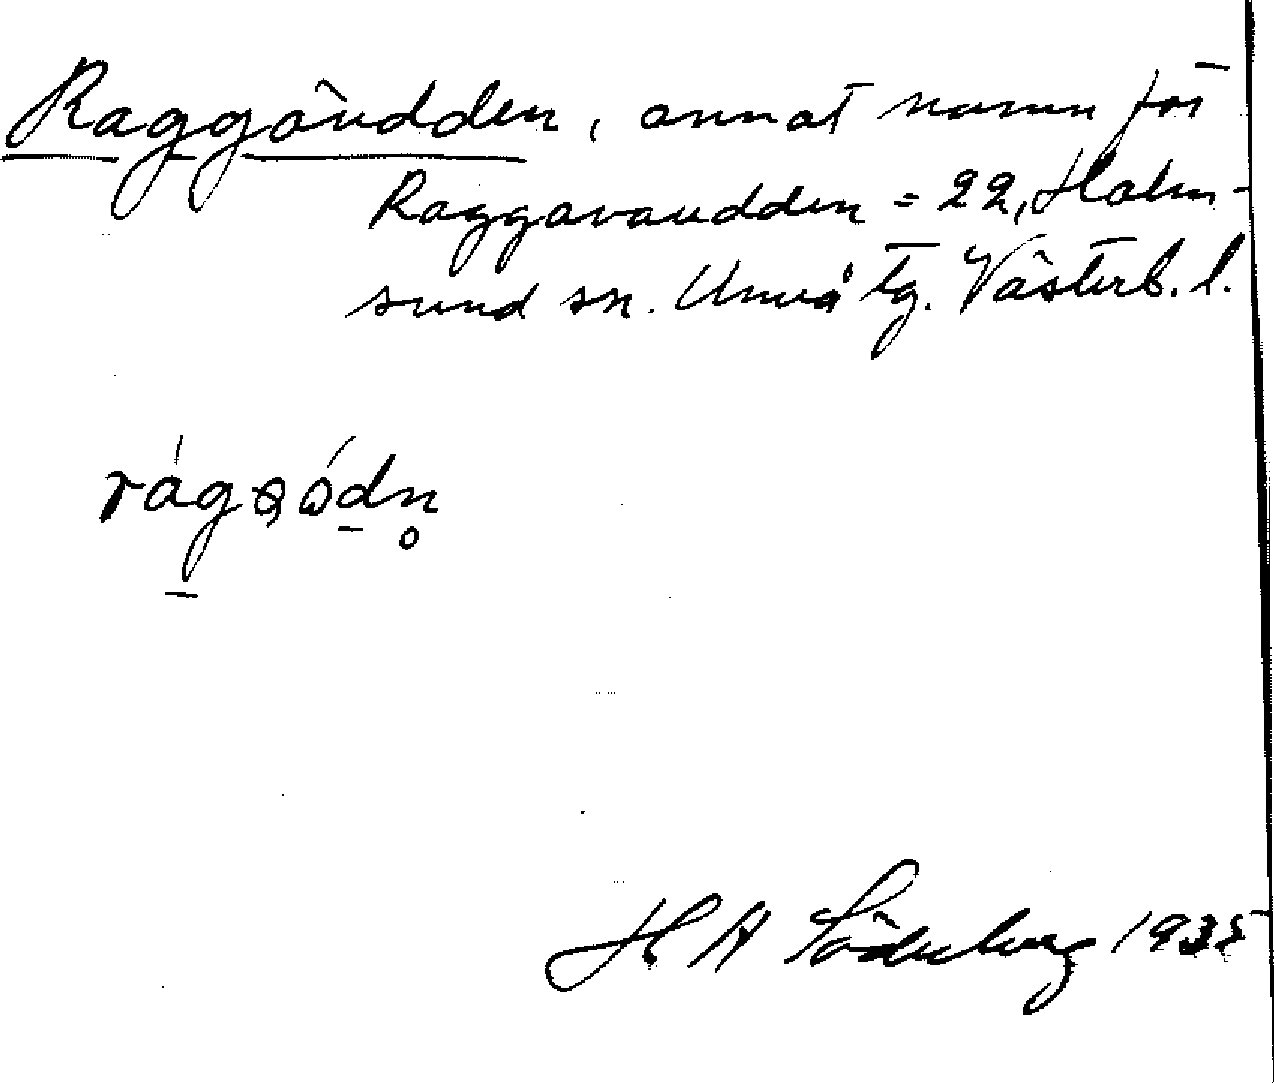 Raggöudden, annat namn för
Raggavaudden = 22, Holm-
sund sn. Umeå tg. Västerb. l.
H A Söderberg 1935